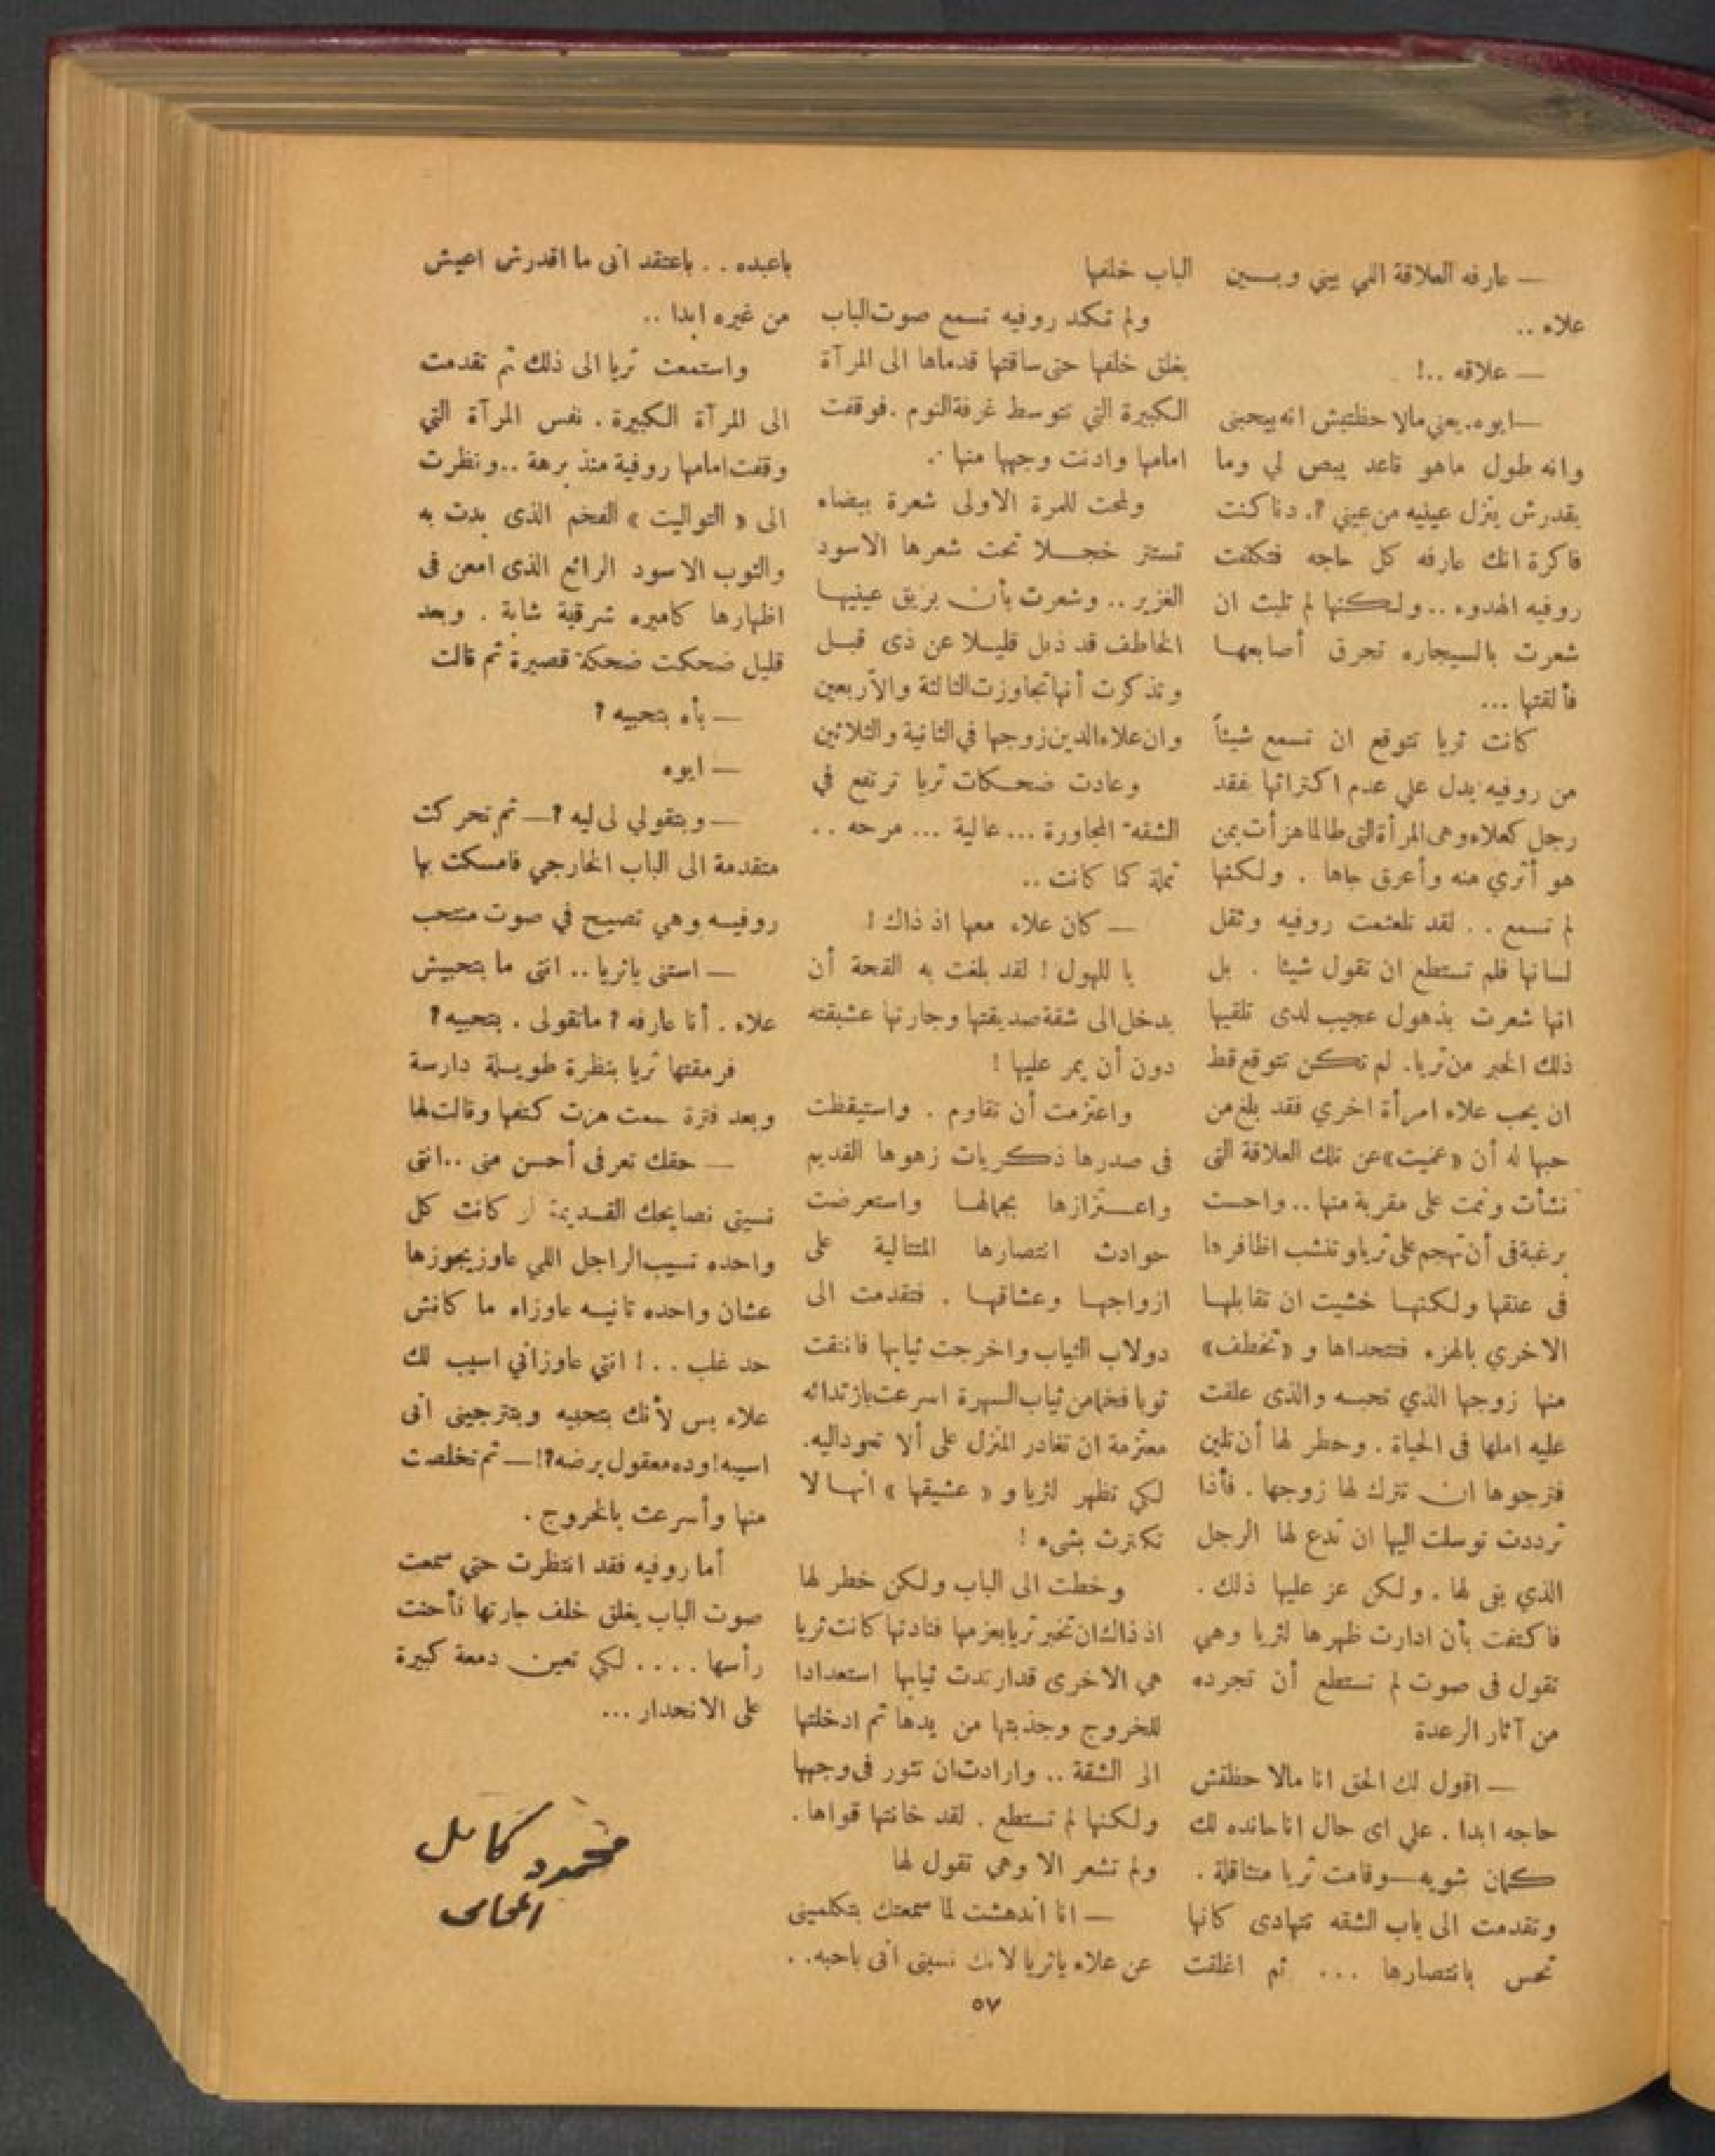 — عارفه العلاقة اللي بيني وبـــين
علاء ..
— علاقه ..!
—ايوه. يعني مالاحظتيش انه بيحبنى
وانه طول ماهو قاعد يبص لي وما
يقدرش ينزل عينيه من عيني ؟. دنا كنت
فاكرة انك عارفه كل حاجه فتكلفت
روفيه الهدوء .. ولـكنها لم تلبث ان
شعرت بالسيجاره تحرق أصابعهـا
فألقتها ...
كانت ثريا تتوقع ان تسمع شيئاً
من روفيه يدل علي عدم اكتراثها بفقد
رجل كعلاء وهى المرأة التى طالما هزأت بمن
هو أثري منه وأعرق جاها . ولكنها
لم تسمع . . لقد تلعثمت روفيه وثقل
لسانها فلم تستطع ان تقول شيئا . بل
انها شعرت بذهول عجيب لدى تلقيها
ذلك الخبر من ثريا. لم تكن تتوقع قط
ان يحب علاء امرأة اخري فقد بلغ من
حبها له أن «عميت» عن تلك العلاقة التى
نشأت ونمت على مقربة منها .. واحست
برغبة فى أن تهجم على ثريا وتنشب اظافرها
فى عنقها ولكنهـا خشيت ان تقابلهـا
الاخري بالهزء فتتحداها و «تخطف»
منها زوجها الذي تحبـه والذى علقت
عليه املها فى الحياة . وخطر لها أن تلين
فترجوها ان تترك لها زوجها . فأذا
ترددت توسلت اليها ان تدع لها الرجل
الذي بقى لها . ولكن عز عليها ذلك .
فاكتفت بأن ادارت ظهرها لثريا وهي
تقول فى صوت لم تستطع أن تجرده
من آثار الرعدة
— اقول لك الحق انا مالاحظتش
حاجه ابدا . علي اى حال انا حانده لك
كمان شويه—وقامت ثريا متثاقلة .
وتقدمت الى باب الشقه تتهادى كانها
تحس بانتصارها ... ثم اغلقت
الباب خلفها
ولم تكد روفيه تسمع صوت الباب
يغلق خلفها حتى ساقتها قدماها الى المرآة
الكبيرة التي تتوسط غرفة النوم .فوقفت
امامها وادنت وجهها منها ..
ولمحت للمرة الاولى شعرة بيضاء
تستتر خجـلا تحت شعرها الاسود
الغزير .. وشعرت بأن بريق عينيهـا
الخاطف قد ذبل قليـلا عن ذى قبـل
وتذكرت أنها تجاوزت الثالثة والأربعين
وان علاء الدين زوجها في الثانية والثلاثين
وعادت ضحـكات ثريا ترتفع في
الشقة المجاورة ... عالية ... مرحه ..
ثملة كما كانت ..
— كان علاء معها اذ ذاك !
يا للهول ! لقد بلغت به القحة أن
يدخل الى شقة صديقتها وجارتها عشيقته
دون أن يمر عليها !
واعتزمت أن تقاوم . واستيقظت
فى صدرها ذكريات زهوها القديم
واعـتزازها بجمالهـا واستعرضت
حوادث انتصارها المتتالية على
ازواجهـا وعشاقهـا . فتقدمت الى
دولاب الثياب واخرجت ثيابها فانتقت
ثوبا فخما من ثياب السهرة اسرعت بازتدائه
معتزمة ان تغادر المنزل على ألا تعود اليه.
لكي تظهر لثريا و « عشيقها » انهـا لا
تكترث بشىء !
وخطت الى الباب ولكن خطر لها
اذ ذاك ان تخبر ثريا بعزمها فنادتها كانت ثريا
هي الاخرى قد ارتدت ثيابها استعدادا
للخروج وجذبتها من يدها ثم ادخلتها
الى الشقة .. وارادت ان تثور فى وجهها
ولكنها لم تستطع . لقد خانتها قواها .
ولم تشعر الا وهى تقول لها
— انا اندهشت لما سمعتك بتكلمينى
عن علاء ياثريا لانك نسيتى انى باحبه..
باعبده . . باعتقد انى ما اقدرش اعيش
من غيره ابدا ..
واستمعت ثريا الى ذلك ثم تقدمت
الى المرآة الكبيرة . نفس المرآة التي
وقفت امامها روفية منذ برهة .. ونظرت
الى « التواليت » الفخم الذى بدت به
والثوب الاسود الرائع الذى امعن فى
اظهارها كاميره شرقية شابة . وبعد
قليل ضحكت ضحكة قصيرة ثم قالت
— بأه بتحبيه ؟
— ايوه
— وبتقولي لى ليه ؟— ثم تحركت
متقدمة الى الباب الخارجي فامسكت بها
روفيـه وهي تصيح في صوت منتحب
— استنى ياثريا .. انتى ما بتحبيش
علاء . أنا عارفه ؟ ماتقولى . بتحبيه؟
فرمقتها ثريا بنظرة طويـلة دارسة
وبعد فترة صمت هزت كتفها وقالت لها
— حقك تعرفى أحسن منى ..انتى
نسيتى نصايحك القـديمة لو كانت كل
واحده تسيب الراجل اللي عاوز يجوزها
عشان واحده تانيـه عاوزاه ما كانش
حد غلب . . ! انتي عاوزاني اسيب لك
علاء بس لأنك بتحبيه وبتترجينى انى
اسيبه! وده معقول برضه؟!— ثم تخلصت
منها وأسرعت بالخروج .
أما روفيه فقد انتظرت حتي سمعت
صوت الباب يغلق خلف جارتها فأحنت
رأسها . . . . لكي تعين دمعة كبيرة
على الانحدار ...
محمود كامل
المحامى
٥٧